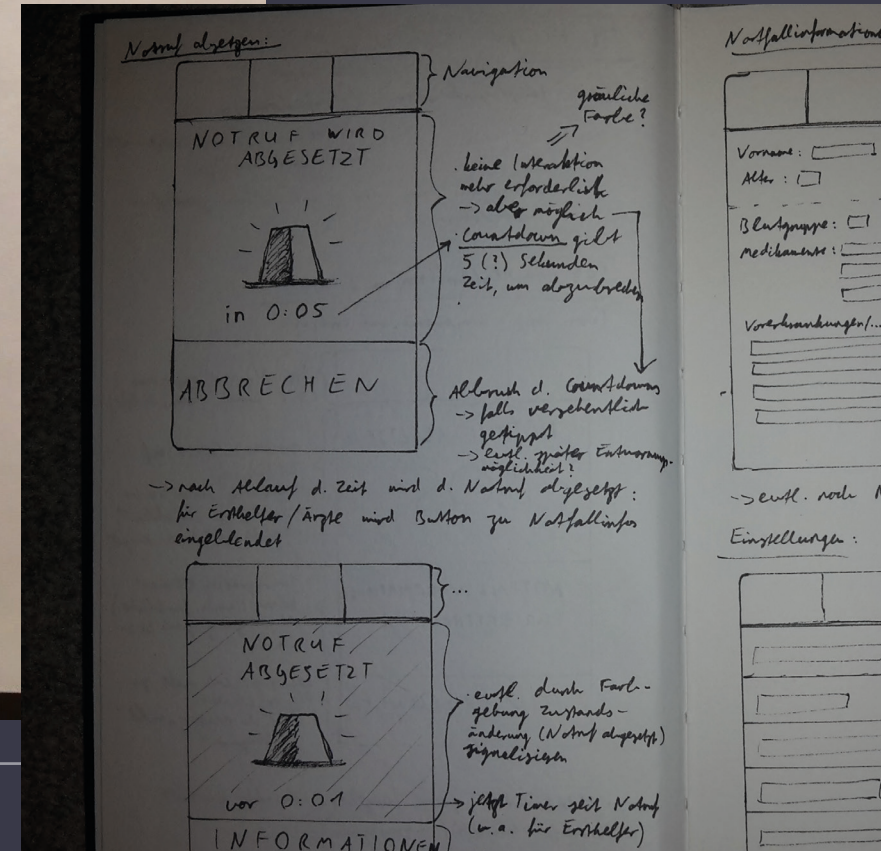 Notruf absetzen:
Navigation
gräuliche
Farbe?
NOTRUF WIRD
ABGESETZT
in 0:05
· keine Interaktion
mehr erforderlich
-> aber möglich
· Countdown gibt
5 (?) Sekunden
Zeit, um abzubrechen
ABBRECHEN
Abbruch d. Countdowns
-> falls versehentlich
getippt
-> evtl. später Entwarnungs-
möglichkeit?
-> nach Ablauf d. Zeit wird d. Notruf abgesetzt:
für Ersthelfer/Ärzte wird Button zu Notfallinfos
eingeblendet
...
NOTRUF
ABGESETZT
vor 0:01
· evtl. durch Farb-
gebung Zustands-
änderung (Notruf abgesetzt)
signalisieren
-> jetzt Timer seit Notruf
(u.a. für Ersthelfer)
INFORMATIONEN
Notfallinformationen
Vorname:
Alter:
Blutgruppe:
Medikamente:
Vorerkrankungen/...
-> evtl. noch
Einstellungen: